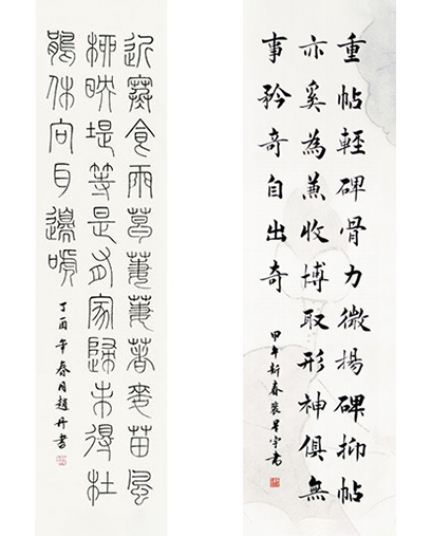 重帖輕碑骨力微揚碑抑帖
亦奚為兼收博取形神俱無
事矜奇自出奇
甲午新春裴宇書
近寒食雨草萋萋著麥苗風
柳映堤等是有家歸未得杜
鵑休向耳邊啼
丁酉年春月趙丹書